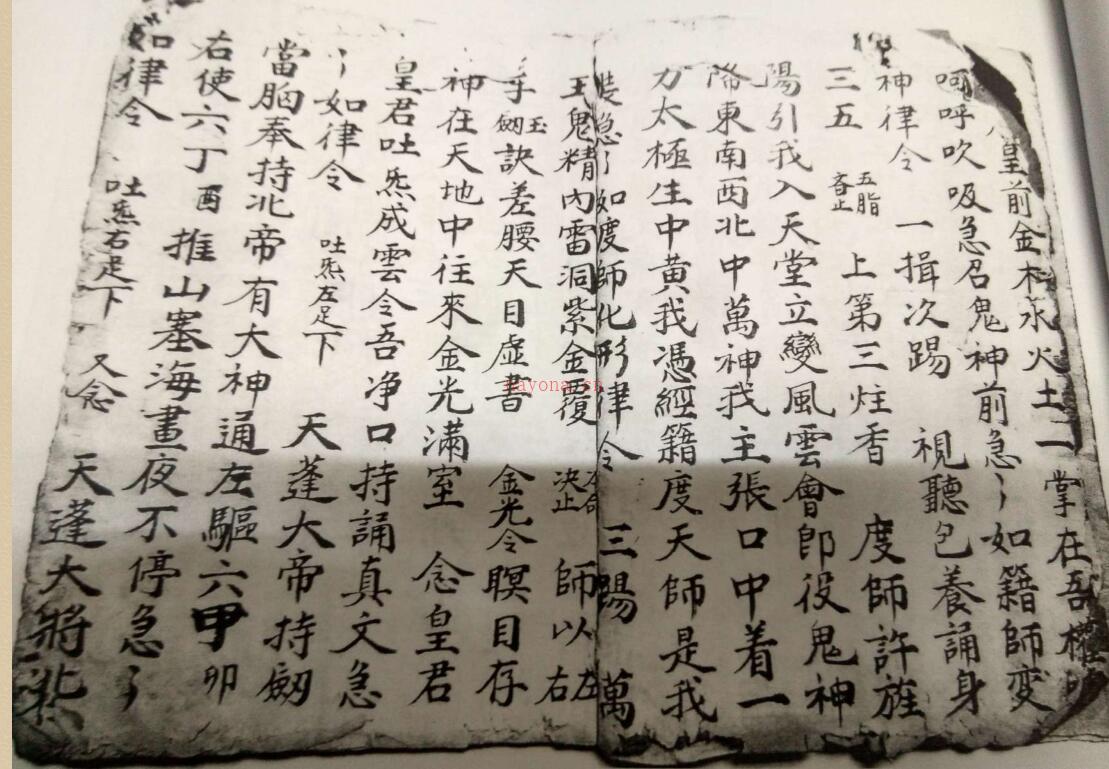 皇前金木水火土一掌在吾權
呵呼吹吸急召鬼神前急〻如籍師变
神律令 一揖次踢 視聽包養誦身
三五 五脂吝正 上第三炷香 度師許旌
陽引我入天堂立變風雲會即役鬼神
降東南西北中萬神我主張口中着一
力太極生中黃我憑經籍度天師是我
裝急〻如度師化形律令 三陽 萬
王鬼精內雷洞紫金覆 決止 師以左右
手玉劔訣差腰天目虛書 金光令瞑目存
神在天地中往來金光滿室 念皇君
皇君吐炁成雲令吾净口持誦真文急
〻如律令 吐炁左足下 天蓬大帝持劔
當胸奉持北帝有大神通左驅六甲卯
右使六丁酉推山塞海晝夜不停急〻
如律令 吐炁右足下 又念 天蓬大將北
nayona.cn